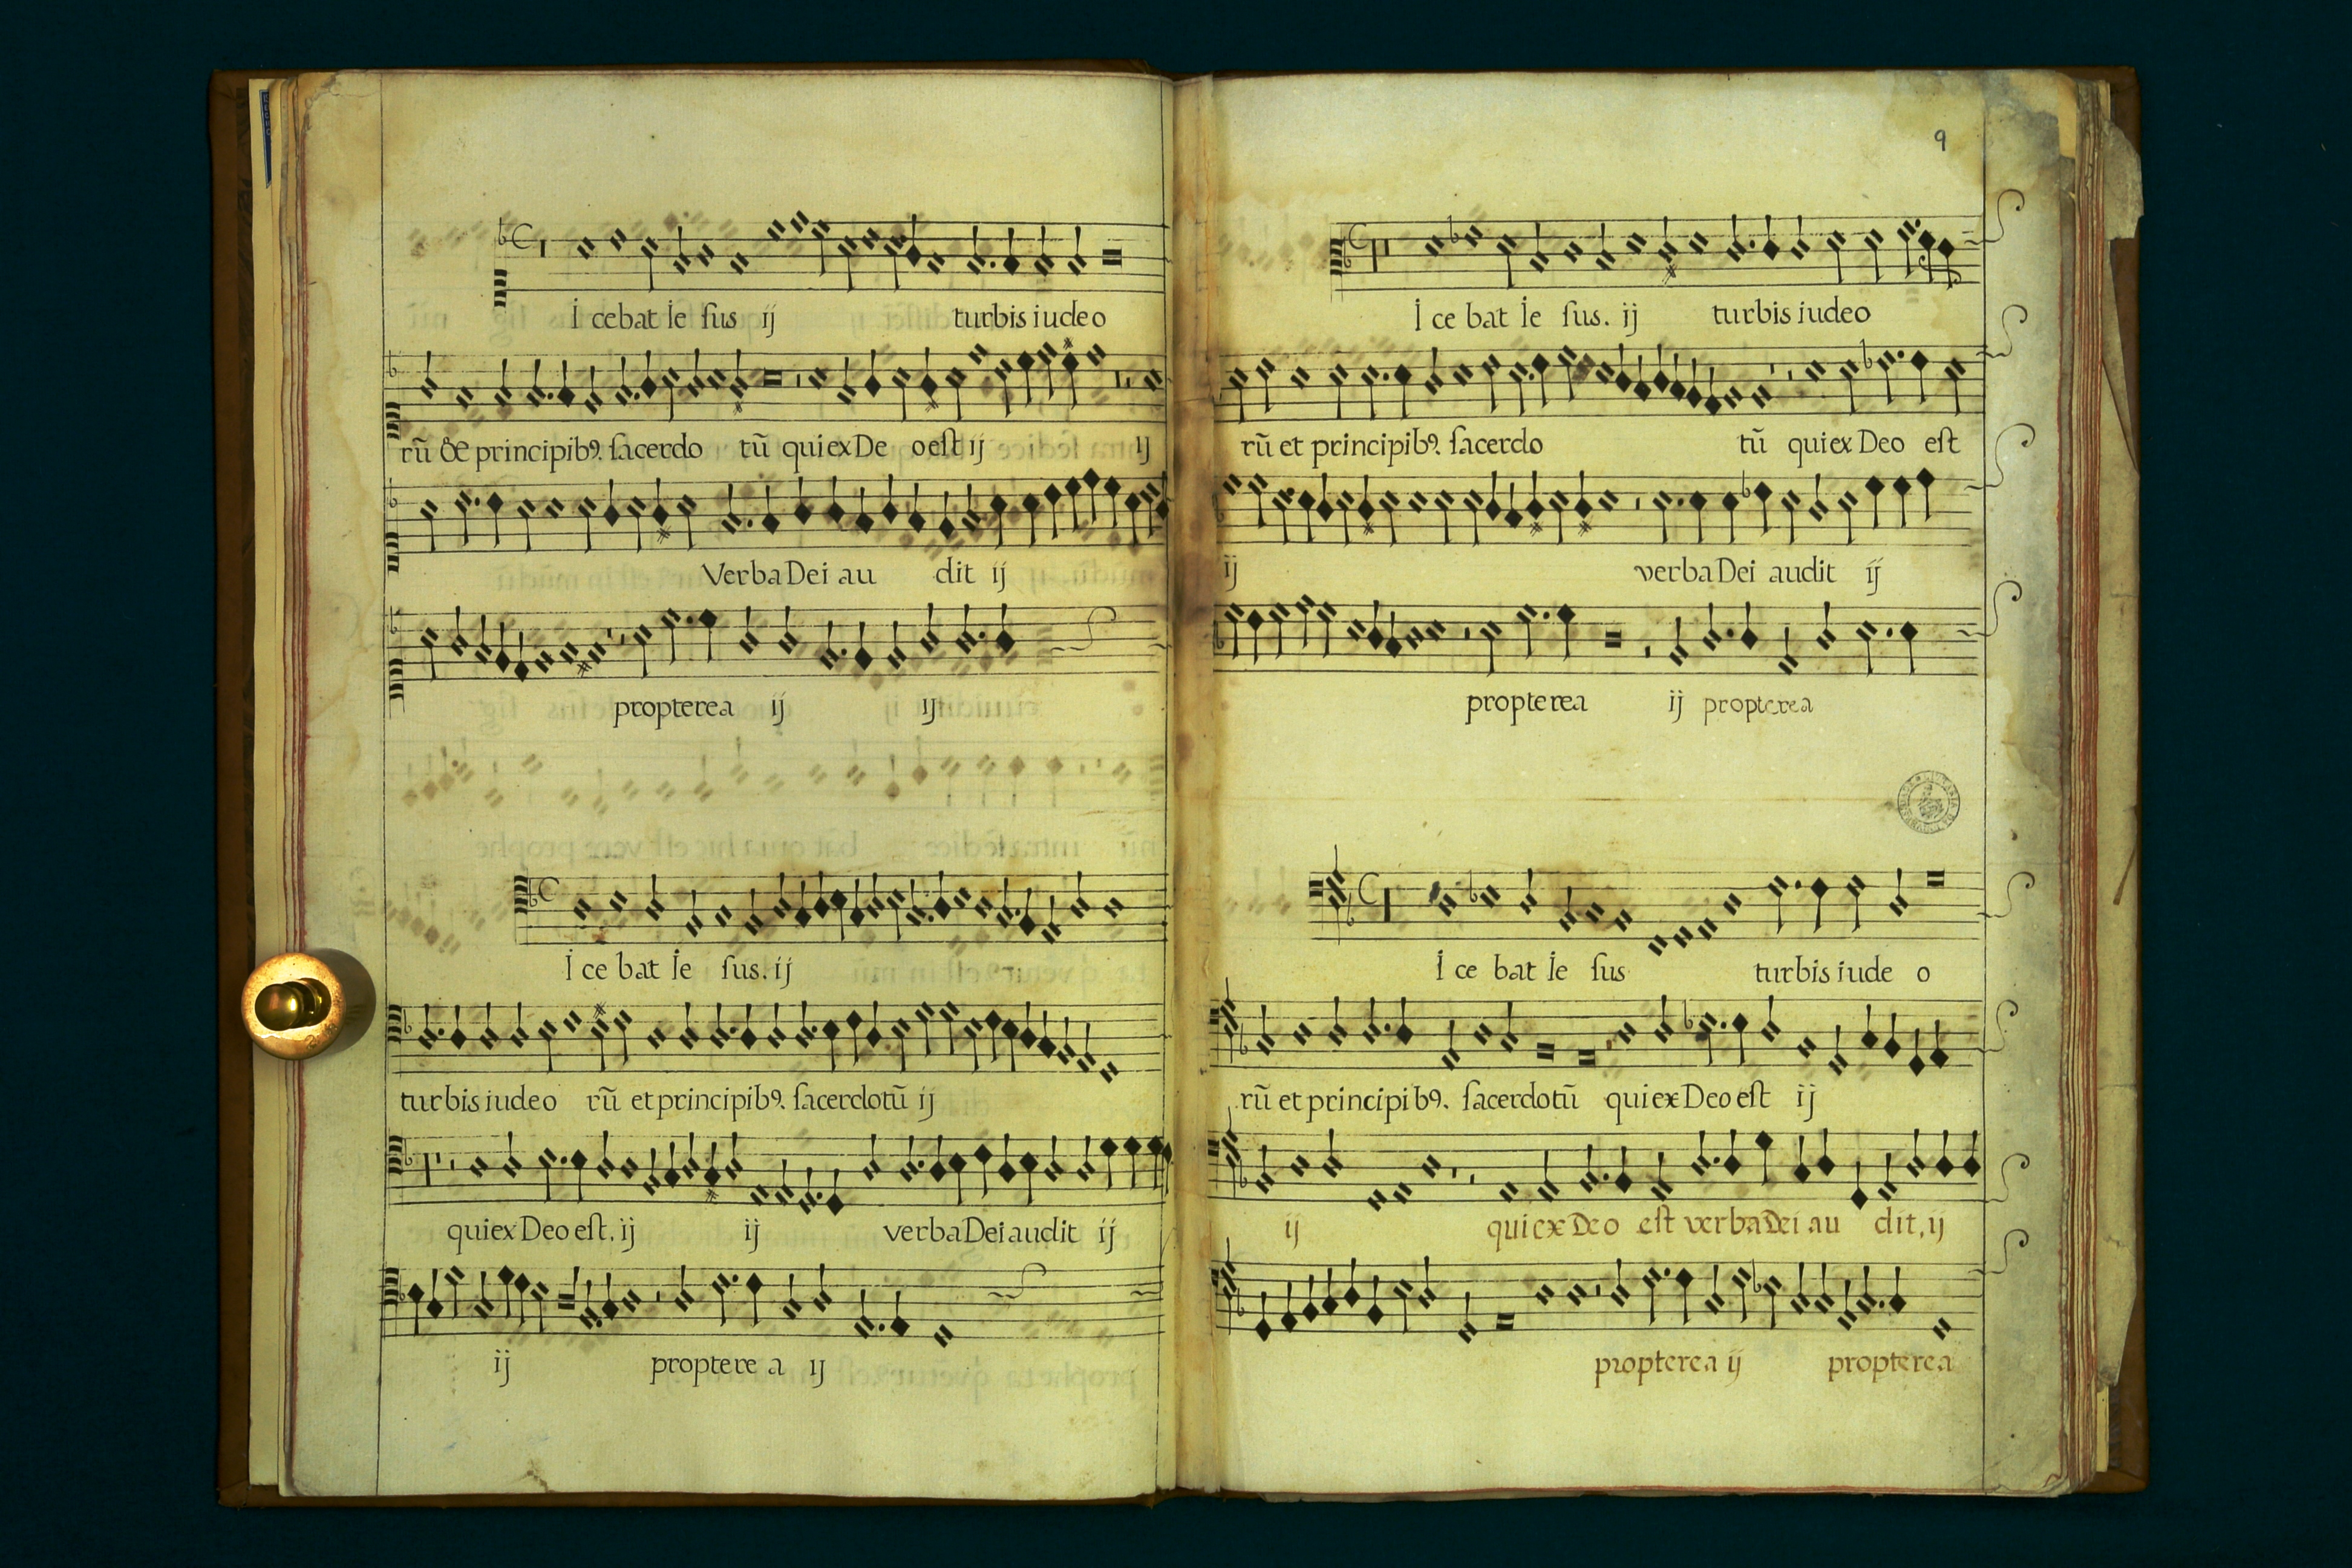 İ cebat İe ſus ij turbis iudeo
rũ & principibꝯ. ſacerdo tũ qui ex De o eſt ij ij
Verba Dei au dit ij
propterea ij ij
İ ce bat İe ſus. ij
turbis iudeo rũ et principibꝯ. ſacerdotũ ij
qui ex Deo eſt, ij ij verba Dei audit ij
ij proptere a ij
9
İ ce bat İe ſus. ij turbis iudeo
rũ et principibꝯ. ſacerdo tũ qui ex Deo eſt
ij verba Dei audit ij
propterea ij propterea
İ ce bat İe ſus turbis iude o
rũ et principi bꝯ. ſacerdotũ qui ex Deo eſt ij
ij qui ex Deo eſt verba Dei au dit, ij
propterea ij propterea